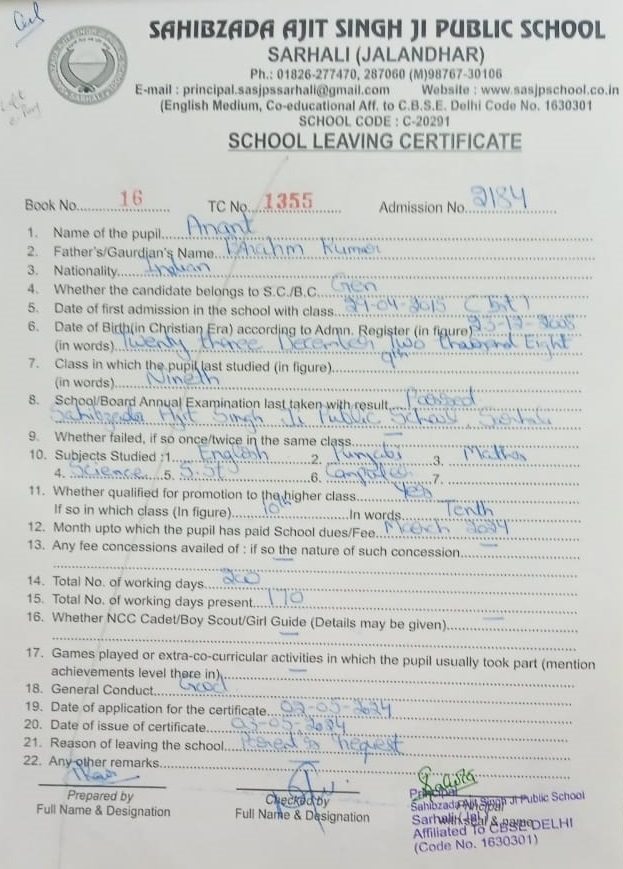 SAHIBZADA AJIT SINGH JI PUBLIC SCHOOL
SARHALI (JALANDHAR)
Ph.: 01826-277470, 287060 (M)98767-30106
E-mail : principal.sasjpssarhali@gmail.com Website : www.sasjpschool.co.in
(English Medium, Co-educational Aff. to C.B.S.E. Delhi Code No. 1630301
SCHOOL CODE : C-20291
SCHOOL LEAVING CERTIFICATE
Book No. 16 TC No. 1355 Admission No. 2134
1. Name of the pupil Anant
2. Father's/Gaurdian's Name Kumar
3. Nationality Indian
4. Whether the candidate belongs to S.C./B.C. Gen
5. Date of first admission in the school with class -04-2015
6. Date of Birth(in Christian Era) according to Admn. Register (in figure) 23-12-2008
(in words) Twenty three December Two Thousand Eight
7. Class in which the pupil last studied (in figure) 9th
(in words) Nineth
8. School/Board Annual Examination last taken with result Passed
Sahibzada Ajit Singh Ji Public School, Sarhali
9. Whether failed, if so once/twice in the same class —
10. Subjects Studied :1. English 2. Punjabi 3. Maths
4. Science 5. S.St 6. Computer 7.
11. Whether qualified for promotion to the higher class Yes
If so in which class (In figure) 10th In words Tenth
12. Month upto which the pupil has paid School dues/Fee March 2024
13. Any fee concessions availed of : if so the nature of such concession —
—
14. Total No. of working days 200
15. Total No. of working days present 170
16. Whether NCC Cadet/Boy Scout/Girl Guide (Details may be given) —
—
17. Games played or extra-co-curricular activities in which the pupil usually took part (mention
achievements level there in) —
18. General Conduct Good
19. Date of application for the certificate 02-05-2024
20. Date of issue of certificate 03-05-2024
21. Reason of leaving the school request
22. Any other remarks
Prepared by Checked by Principal
Full Name & Designation Full Name & Designation
Principal
Sahibzada Ajit Singh Ji Public School
Sarhali (Jal.)
Affiliated To CBSE DELHI
(Code No. 1630301)